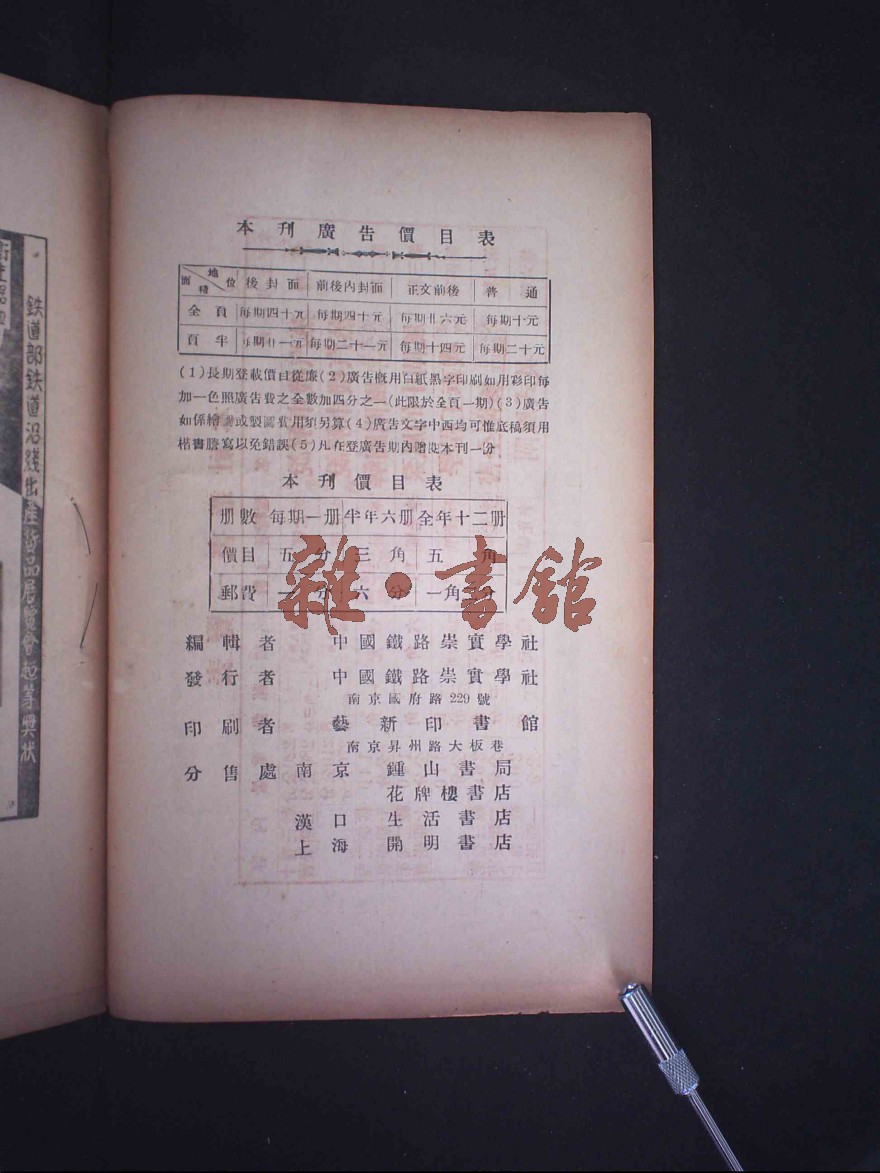 本刊廣告價目表
地位 面積 後封面 前後內封面 正文前後 普通
全頁 每期四十元 每期四十元 每期廿六元 每期十元
頁半 每期廿一元 每期二十一元 每期十四元 每期二十元
(1)長期登載價目從廉(2)廣告概用白紙黑字印刷如用彩印每
加一色照廣告費之全數加四分之一(此限於全頁一期)(3)廣告
如係繪圖或製圖費用須另算(4)廣告文字中西均可惟底稿須用
楷書謄寫以免錯誤(5)凡在登廣告期內贈送本刊一份
本刊價目表
册數 每期一册 半年六册 全年十二册
價目 五分 三角 五角
郵費 一分 六分 一角二分
雜·書館
編輯者 中國鐵路崇實學社
發行者 中國鐵路崇實學社
南京國府路229號
印刷者 藝新印書館
南京昇州路大板巷
分售處 南京 鍾山書局
花牌樓書店
漢口 生活書店
上海 開明書店
鉄道部鉄道沿綫出產貨品展覽會起等奬狀